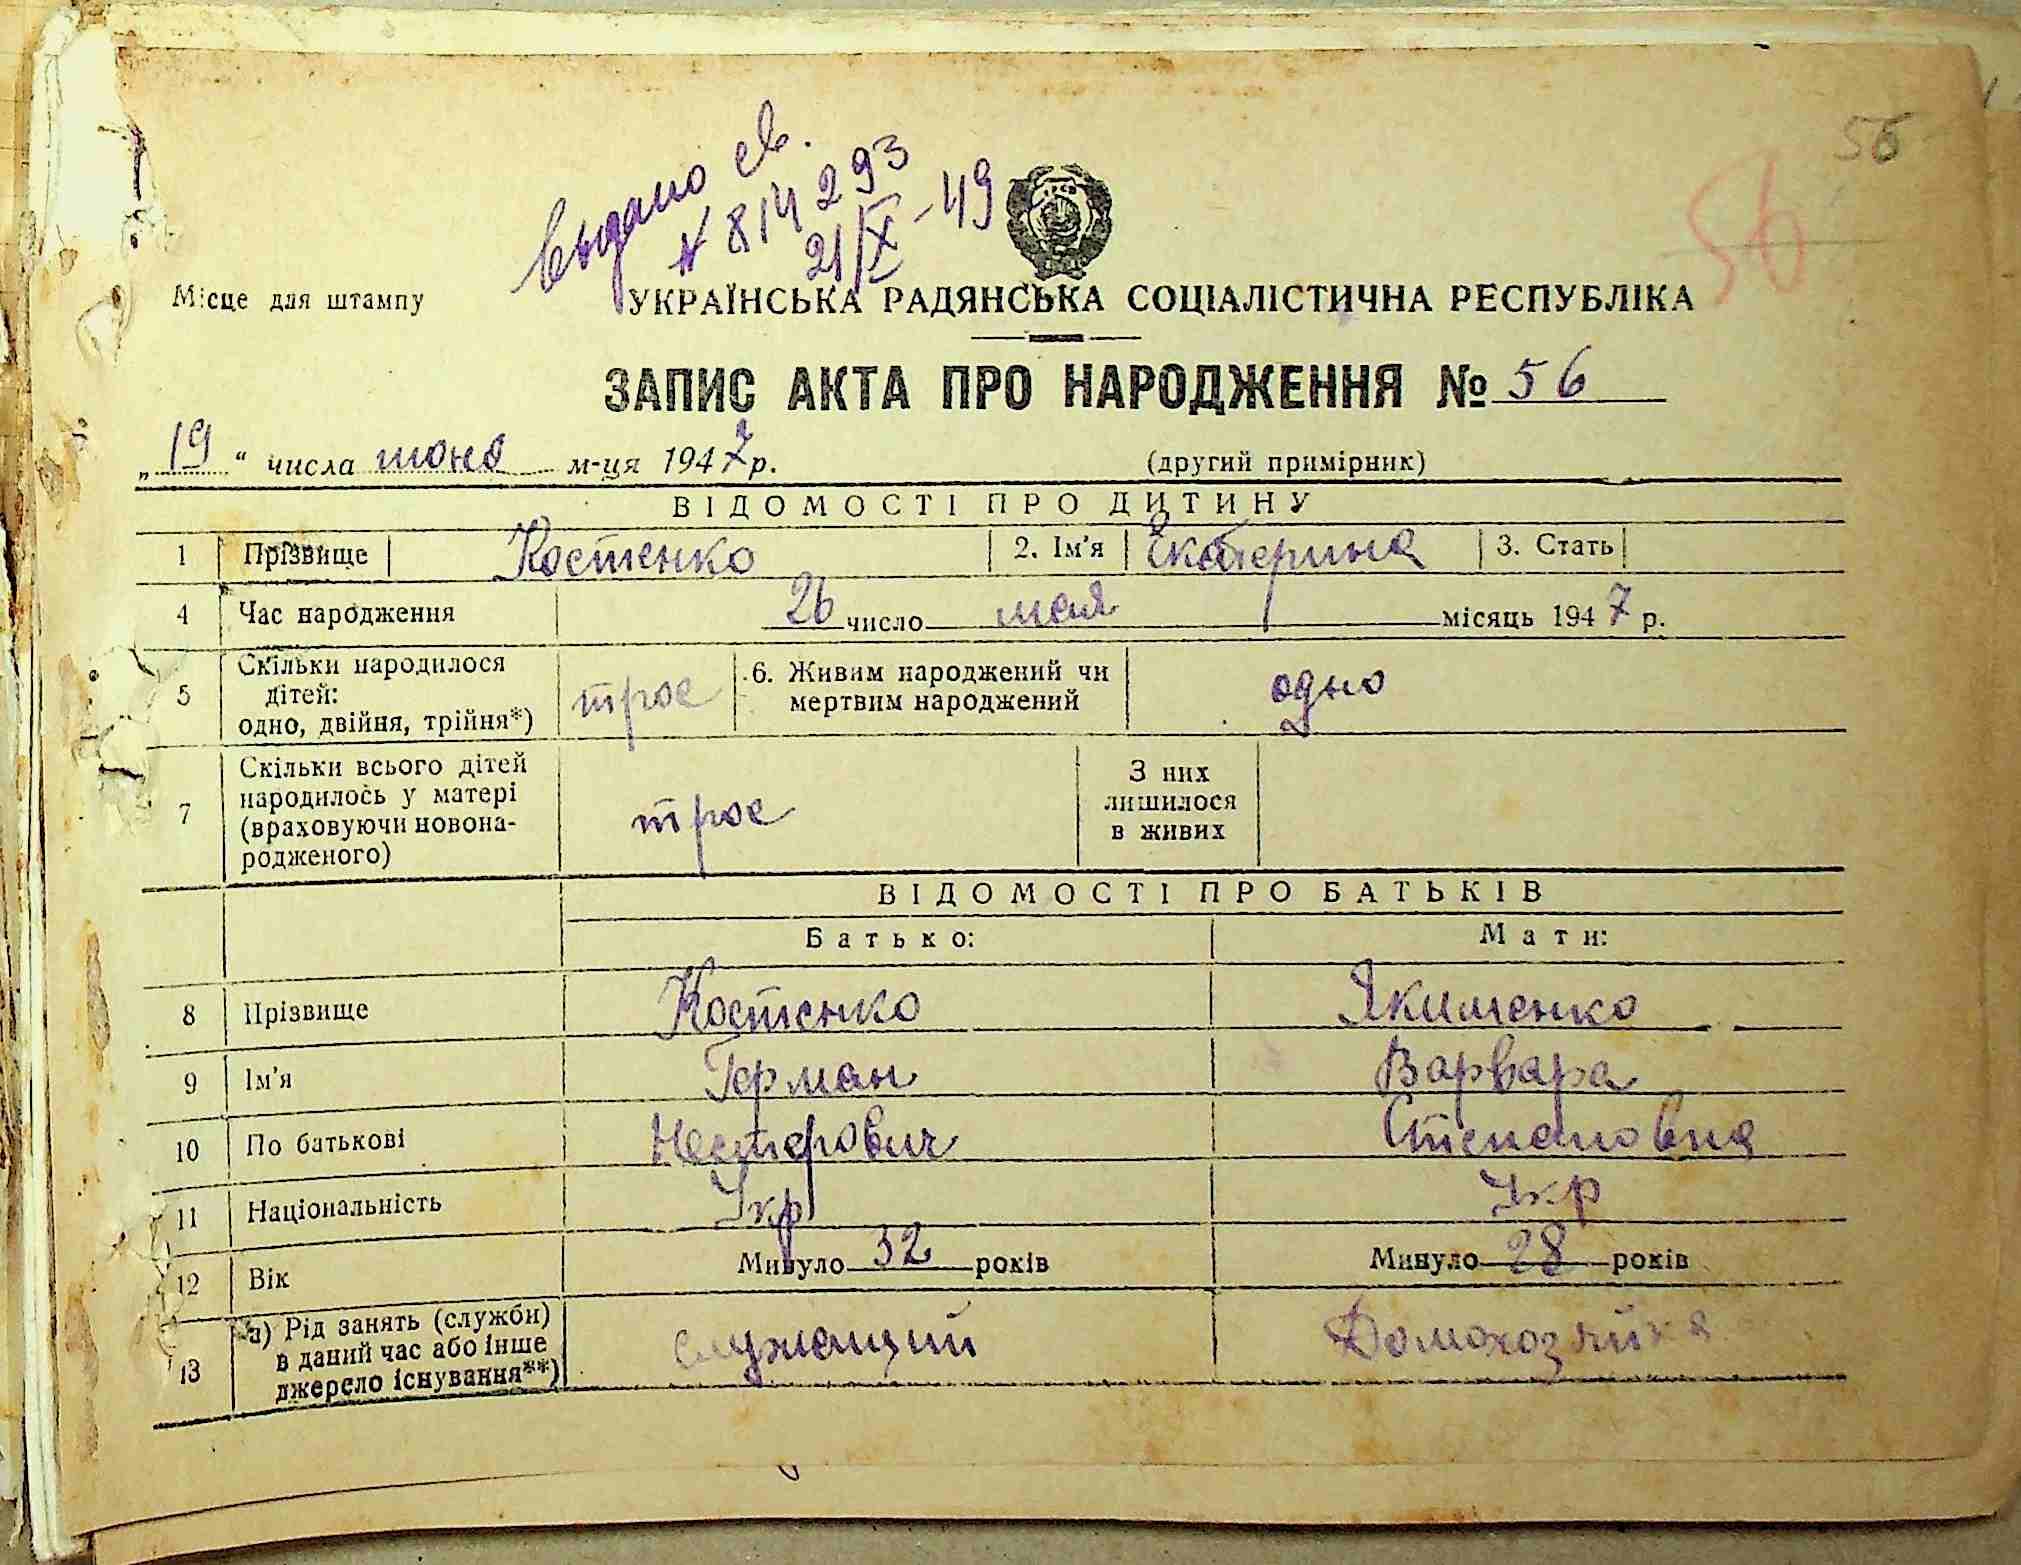 56
Выдано св.
№ 814293
21/X-49
56
Місце для штампу
УКРАЇНСЬКА РАДЯНСЬКА СОЦІАЛІСТИЧНА РЕСПУБЛІКА
ЗАПИС АКТА ПРО НАРОДЖЕННЯ № 56
„19“ числа июня м-ця 1947 р. (другий примірник)
ВІДОМОСТІ ПРО ДИТИНУ
1 Прізвище Костенко 2. Ім'я Екатерина 3. Стать
4 Час народження 26 число мая місяць 1947 р.
5 Скільки народилося
дітей:
одно, двійня, трійня*) трое 6. Живим народжений чи
мертвим народжений одно
7 Скільки всього дітей
народилось у матері
(враховуючи новона-
родженого) трое З них
лишилося
в живих
ВІДОМОСТІ ПРО БАТЬКІВ
Батько: Мати:
8 Прізвище Костенко Якименко
9 Ім'я Герман Варвара
10 По батькові Нестерович Степановна
11 Національність Укр Укр
12 Вік Минуло 32 років Минуло 28 років
13 а) Рід занять (служби)
в даний час або інше
джерело існування**) служащий Домохозяйка